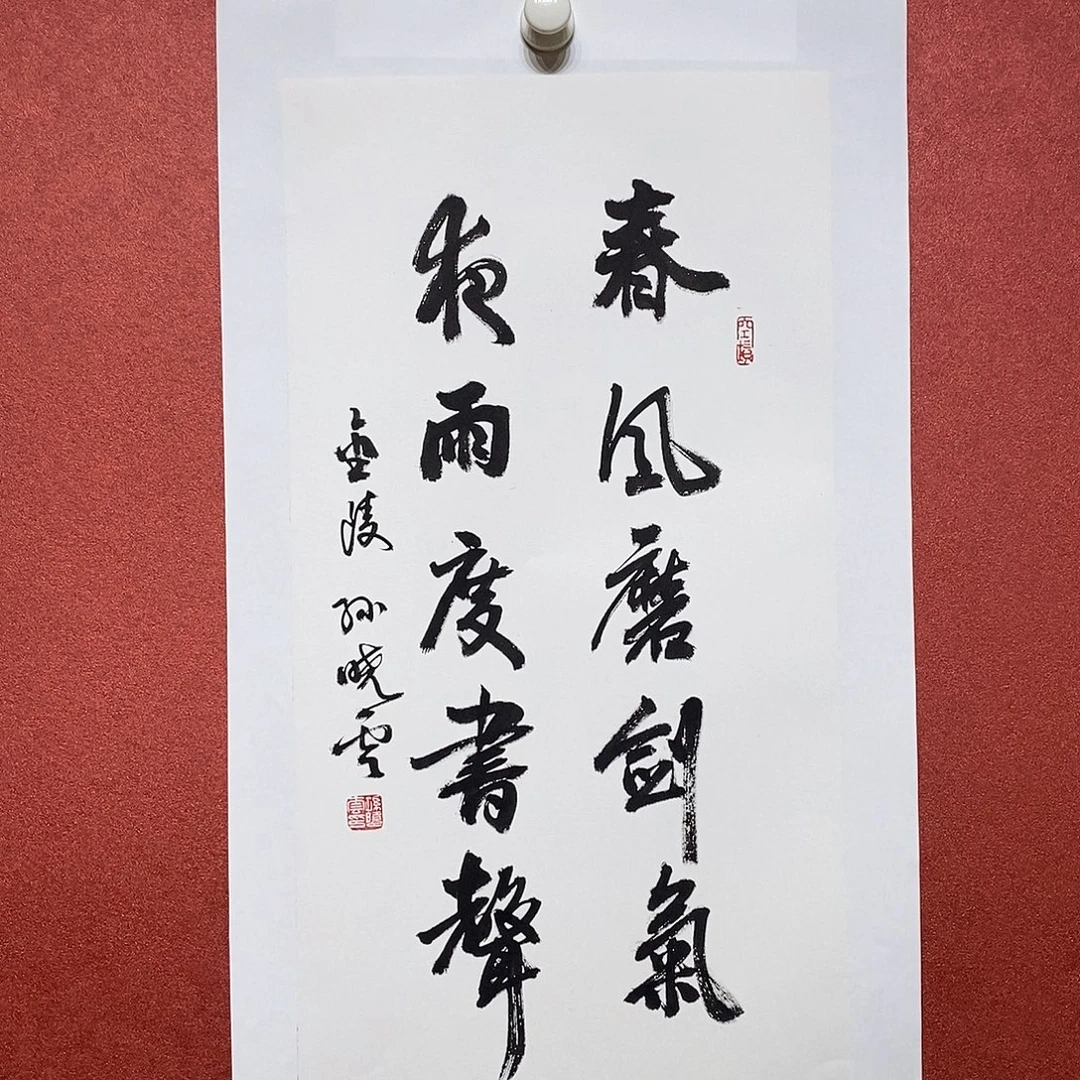 春風磨劍氣
夜雨度書聲
金陵孫曉雲